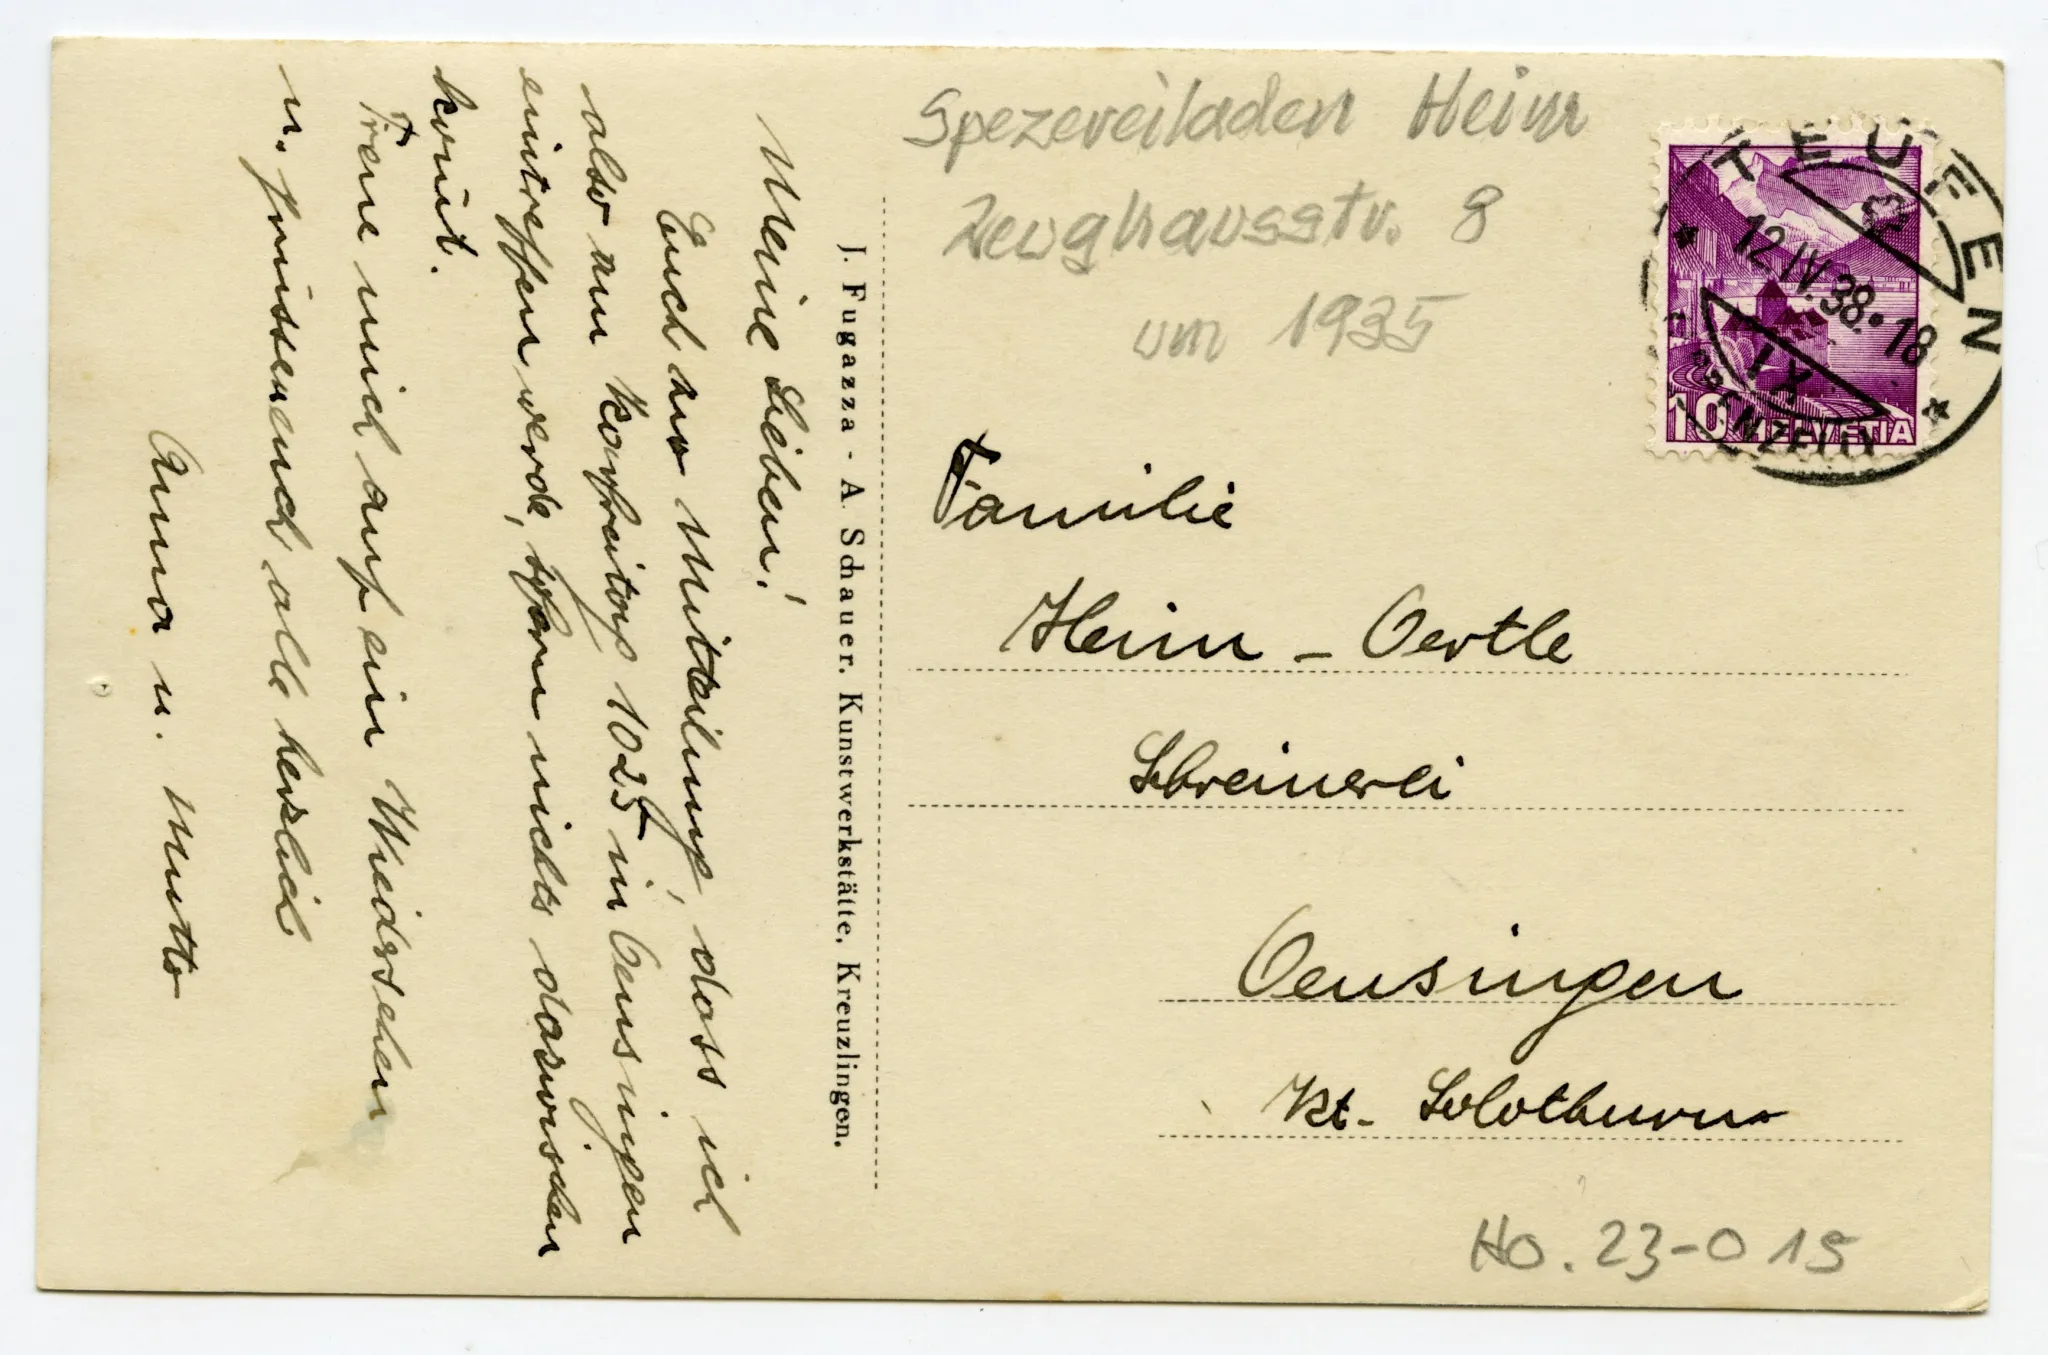 Meine Lieben!
Euch zur Mitteilung, dass ich
also am Karfreitag 1025 in Oensingen
eintreffen werde, sofern nichts dazwischen
kommt.
Freue mich auf ein Wiedersehen
u. grüsse euch alle herzlich
Anna u.
J. Fugazza - A. Schauer, Kunstwerkstätte, Kreuzlingen.
Spezereiladen Heim
Zeughausstr. 8
um 1935
TEUFEN
12.IV.38.18
IX
APPENZELL
10 HELVETIA
Familie
Heim - Oertle
Schreinerei
Oensingen
Kt. Solothurn
Ho. 23-0 15